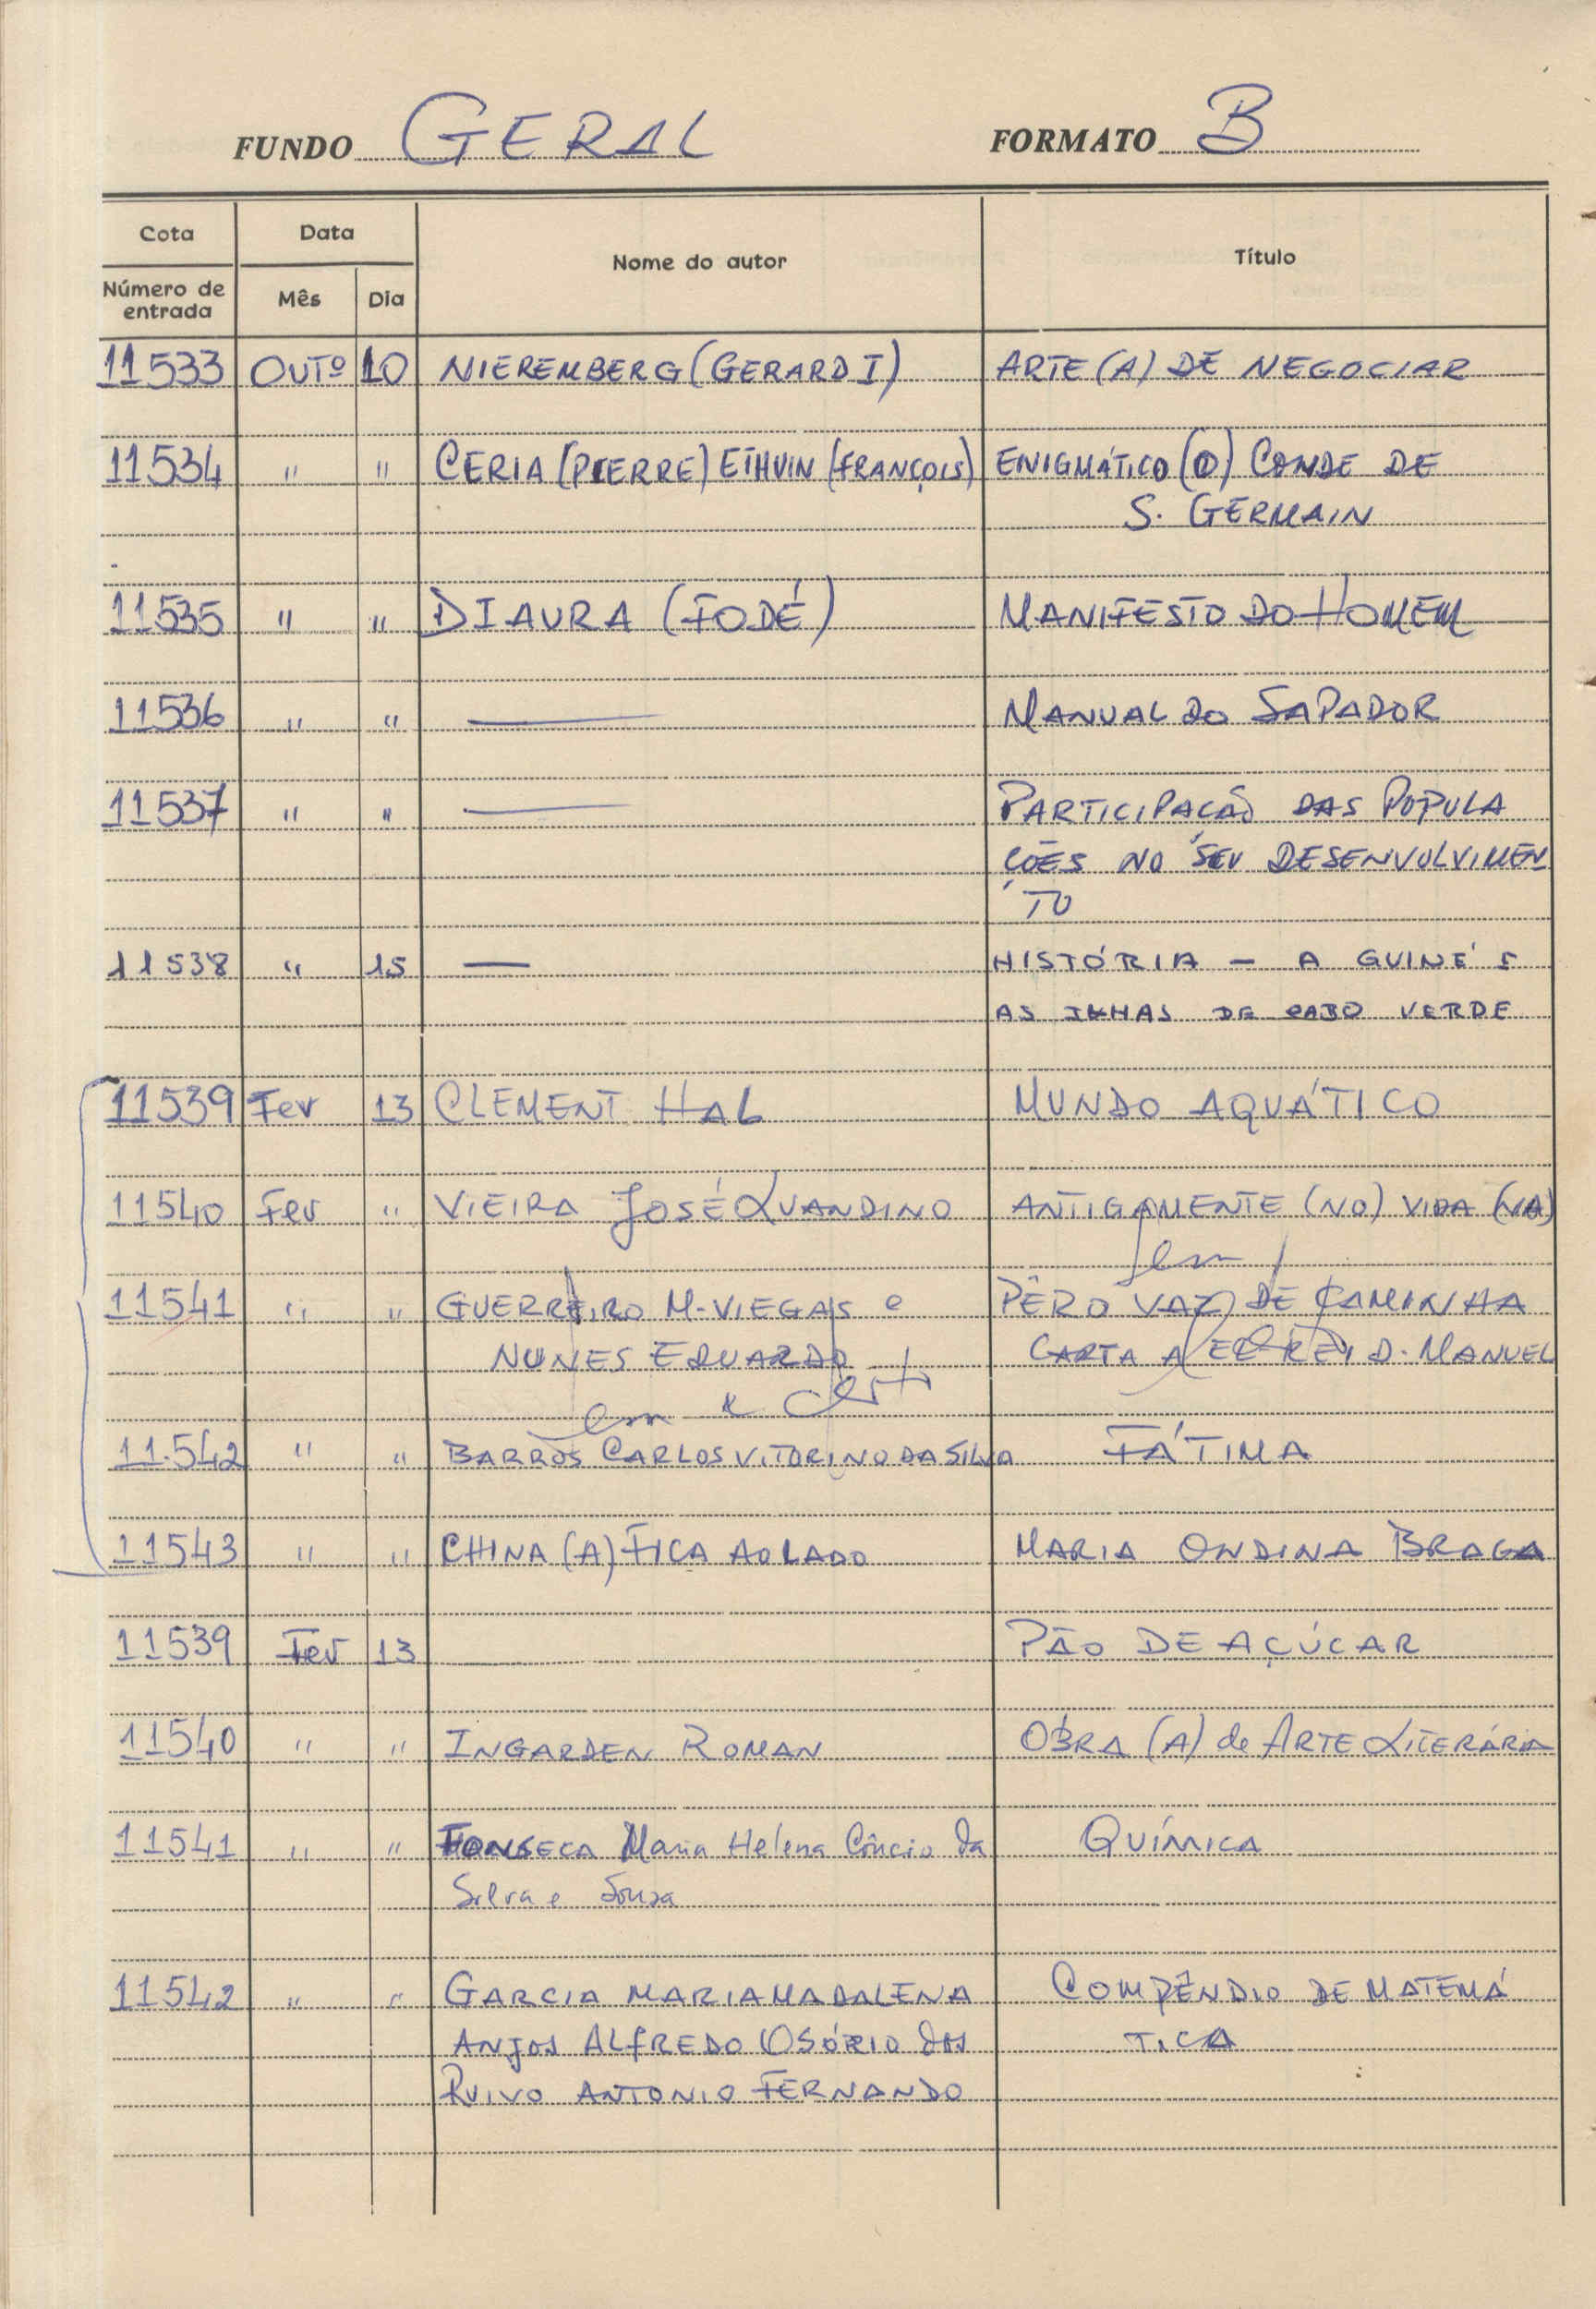 FUNDO GERAL FORMATO B
Cota Data Nome do autor Título
Número de entrada Mês Dia
11533 OUTº 10 NIEREMBERG (GERARD I) ARTE (A) DE NEGOCIAR
11534 " " CERIA (PIERRE) ETHUIN (FRANÇOIS) ENIGMÁTICO (O) CONDE DE
S. GERMAIN
11535 " " DIAURA (FODÉ) MANIFESTO DO HOMEM
11536 " " — MANUAL DO SAPADOR
11537 " " — PARTICIPAÇÃO DAS POPULA
ÇÕES NO SEU DESENVOLVIMEN
TO
11538 " 15 — HISTÓRIA - A GUINÉ E
AS ILHAS DE CABO VERDE
11539 Fev 13 CLEMENT HAL MUNDO AQUÁTICO
11540 Fev " VIEIRA JOSÉ LUANDINO ANTIGAMENTE (NO) VIDA (NA)
11541 " " GUERREIRO M. VIEGAS e PÊRO VAZ DE CAMINHA
NUNES EDUARDO CARTA A EL REI D. MANUEL
11.542 " " BARROS CARLOS VITORINO DA SILVA FÁTIMA
11543 " " CHINA (A) FICA AO LADO MARIA ONDINA BRAGA
11539 Fev 13 — PÃO DE AÇÚCAR
11540 " " INGARDEN ROMAN OBRA (A) de ARTE LITERÁRIA
11541 " " FONSECA Maria Helena Côncio da QUÍMICA
Silva e Sousa
11542 " " GARCIA MARIA MADALENA COMPÊNDIO DE MATEMÁ
ANJOS ALFREDO OSÓRIO dos TICA
RUIVO ANTONIO FERNANDO